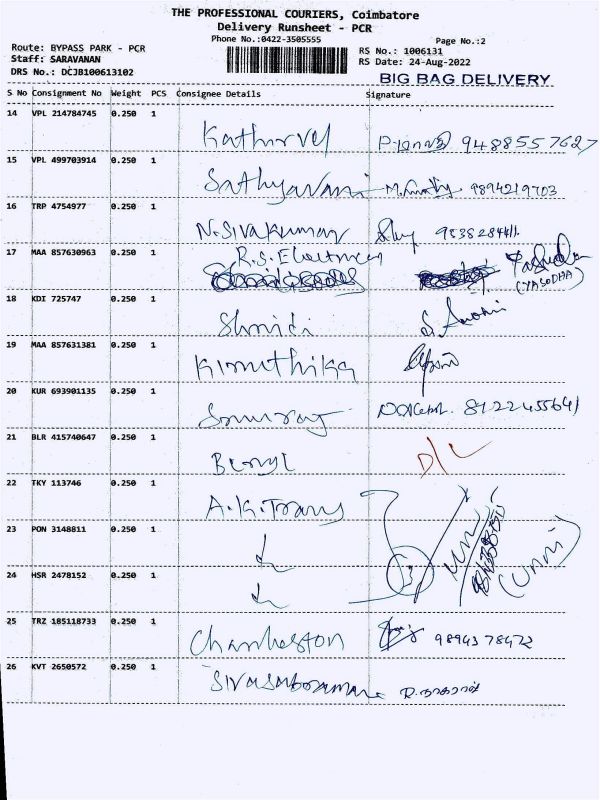 THE PROFESSIONAL COURIERS, Coimbatore
Delivery Runsheet - PCR
Phone No.:0422-3505555
Page No.:2
Route: BYPASS PARK - PCR
RS No.: 1006131
Staff: SARAVANAN
RS Date: 24-Aug-2022
DRS No.: DCJB100613102
BIG BAG DELIVERY
S No Consignment No Weight PCS Consignee Details Signature
14 VPL 214784745 0.250 1 Kathirvel 9488557627
15 VPL 499703914 0.250 1 Sathyavani 9894219703
16 TRP 4754977 0.250 1 N. Sivakumar 9538284411.
17 MAA 857630963 0.250 1 R.S. Electrices
(YASODHA)
18 KDI 725747 0.250 1
19 MAA 857631381 0.250 1 Kiruthika
20 KUR 693901135 0.250 1 8122455641
21 BLR 415740647 0.250 1 D/L
22 TKY 113746 0.250 1 A.K. Trans
23 PON 3148811 0.250 1
24 HSR 2478152 0.250 1 (Unni)
25 TRZ 185118733 0.250 1 Charleston 9894378472
26 KVT 2650572 0.250 1